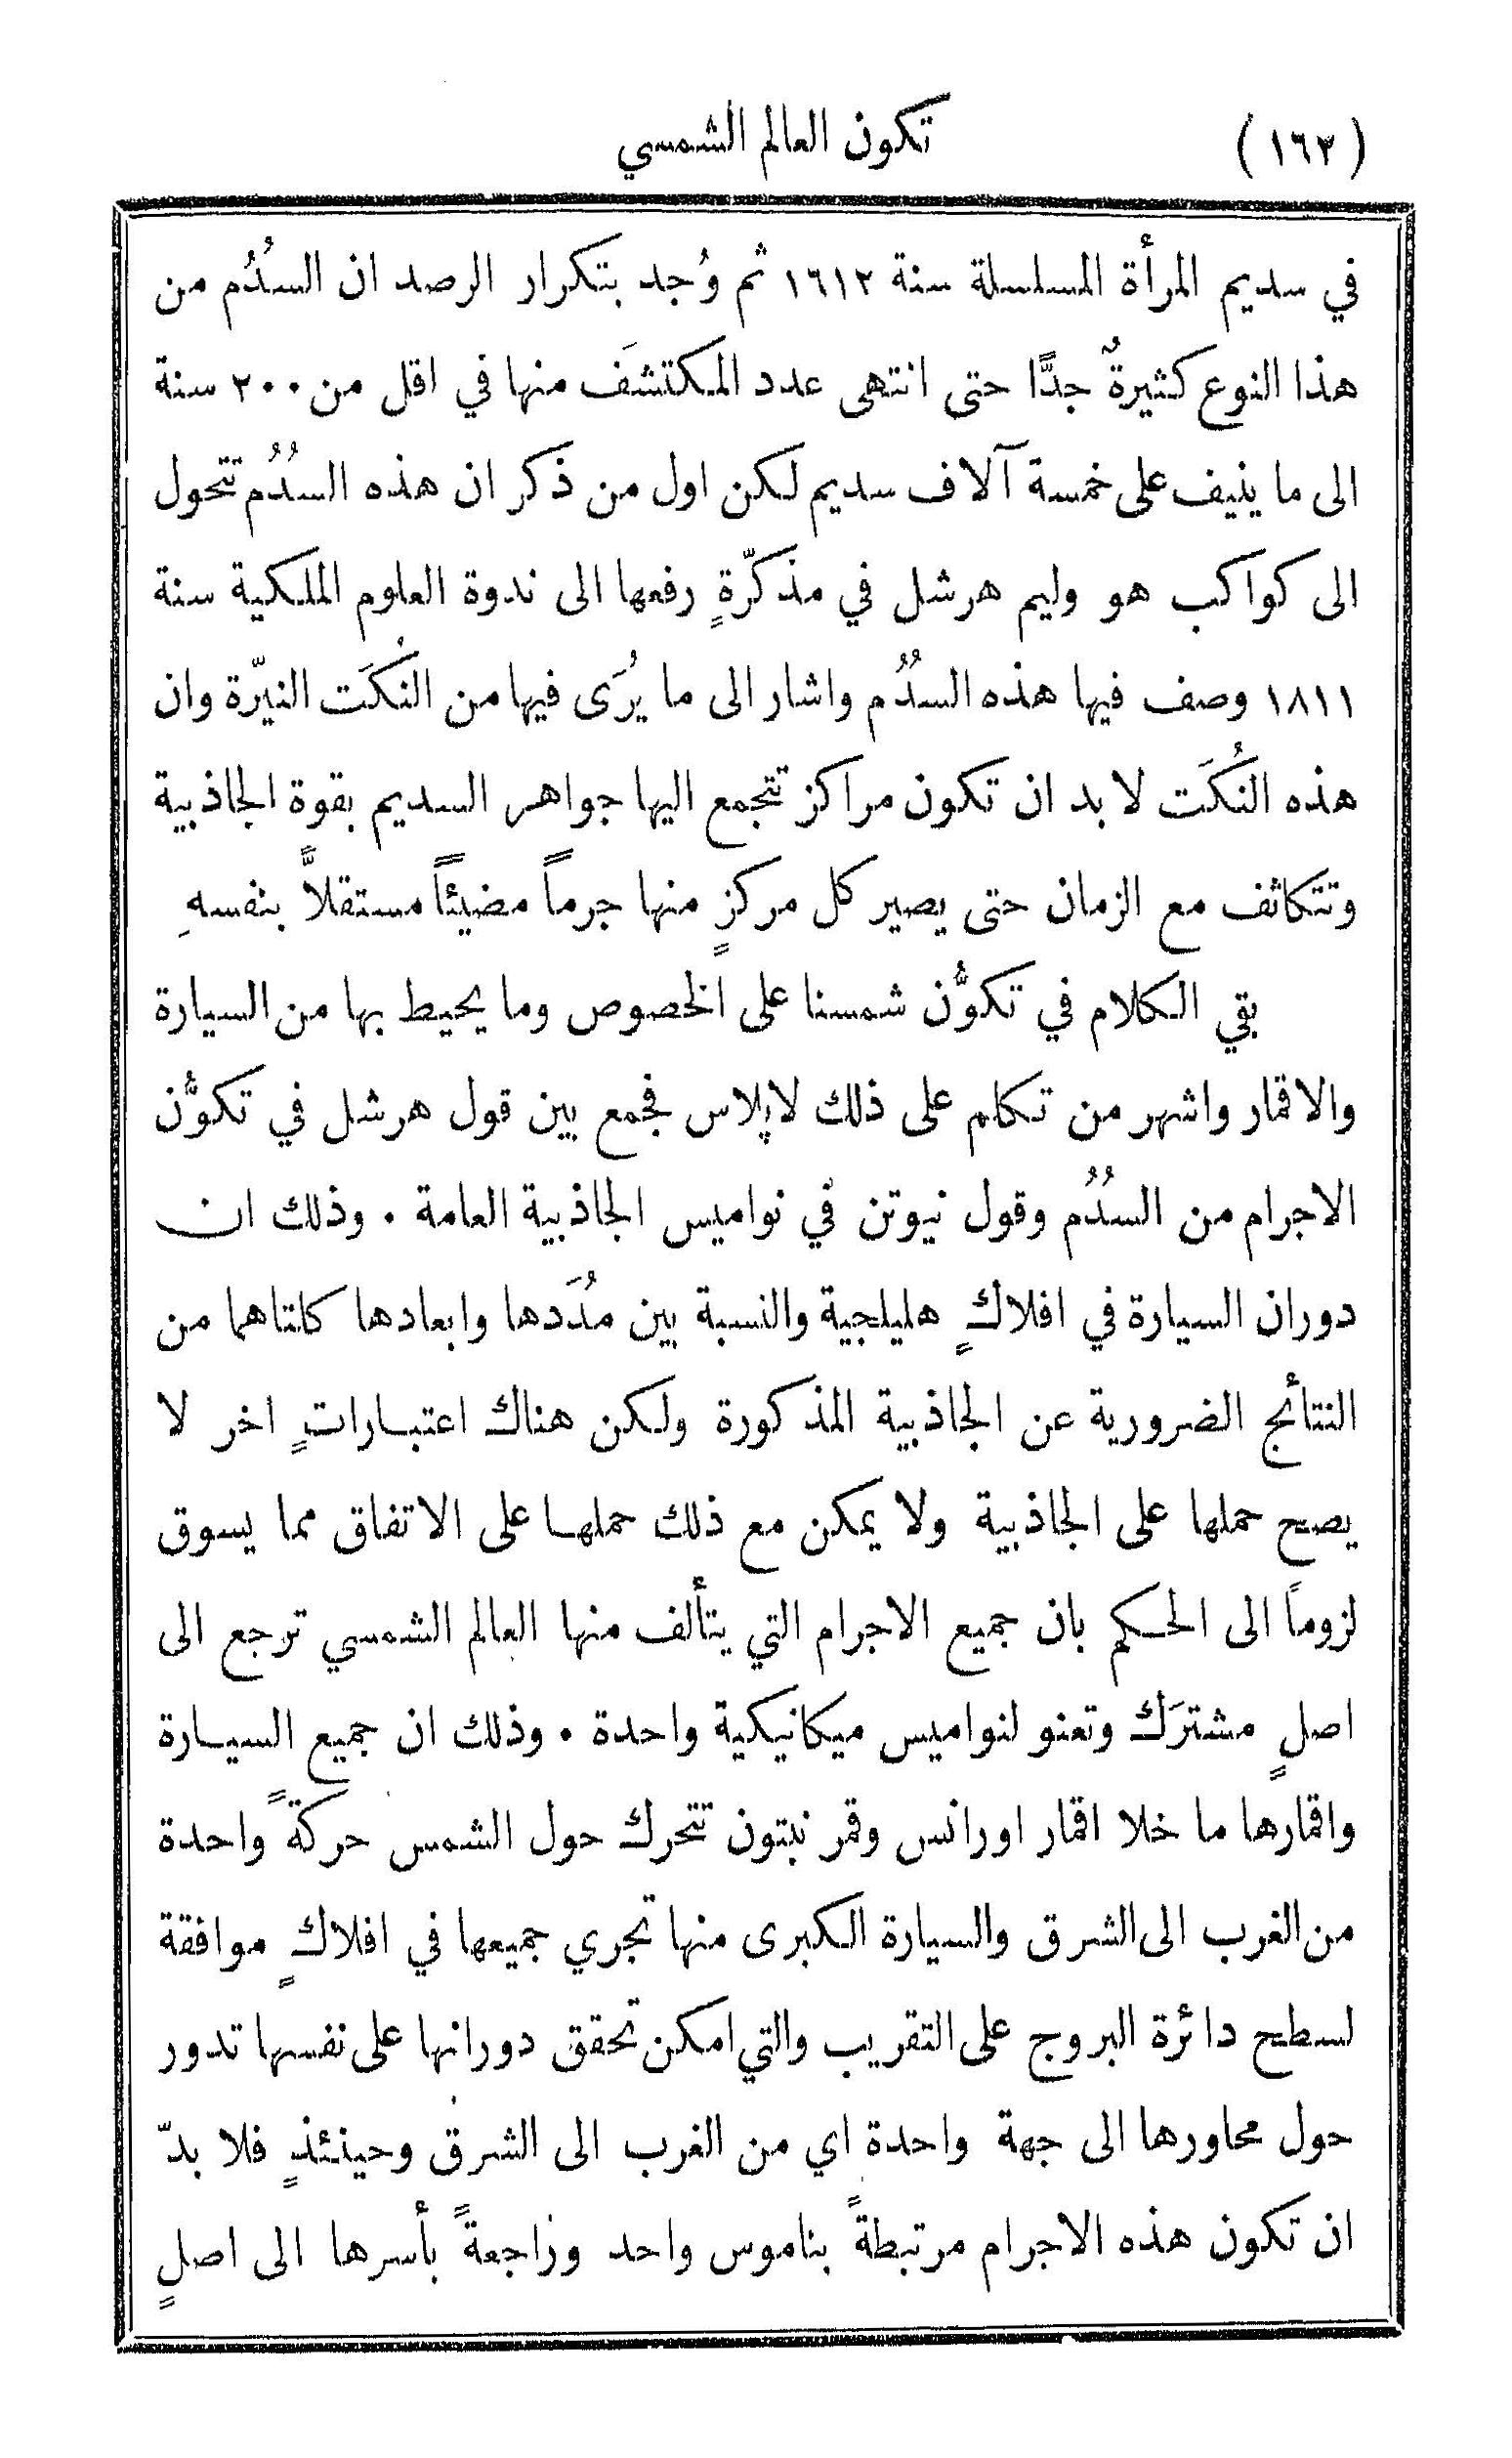 (١٦٢) تكون العالم الشمسي
في سديم المرأة المسلسلة سنة ١٦١٢ ثم وُجد بتكرار الرصد ان السدُم من
هذا النوع كثيرةٌ جدًّا حتى انتهى عدد المكتشَف منها في اقل من ٢٠٠ سنة
الى ما ينيف على خمسة آلاف سديم لكن اول من ذكر ان هذه السدُم تتحول
الى كواكب هو وليم هرشل في مذكّرةٍ رفعها الى ندوة العلوم الملكية سنة
١٨١١ وصف فيها هذه السدُم واشار الى ما يُرَى فيها من النُكَت النيّرة وان
هذه النُكَت لا بد ان تكون مراكز تتجمع اليها جواهر السديم بقوة الجاذبية
وتتكاثف مع الزمان حتى يصير كل مركزٍ منها جرماً مضيئاً مستقلاًّ بنفسهِ
بقي الكلام في تكوُّن شمسنا على الخصوص وما يحيط بها من السيارة
والاقمار واشهر من تكلم على ذلك لاپلاس فجمع بين قول هرشل في تكوُّن
الاجرام من السدُم وقول نيوتن في نواميس الجاذبية العامة . وذلك ان
دوران السيارة في افلاكٍ هليلجية والنسبة بين مُدَدها وابعادها كلتاهما من
النتائج الضرورية عن الجاذبية المذكورة ولكن هناك اعتباراتٍ اخر لا
يصح حملها على الجاذبية ولا يمكن مع ذلك حملها على الاتفاق مما يسوق
لزوماً الى الحكم بان جميع الاجرام التي يتألف منها العالم الشمسي ترجع الى
اصلٍ مشترَك وتعنو لنواميس ميكانيكية واحدة . وذلك ان جميع السيارة
واقمارها ما خلا اقمار اورانس وقمر نبتون تتحرك حول الشمس حركةً واحدة
من الغرب الى الشرق والسيارة الكبرى منها تجري جميعها في افلاكٍ موافقة
لسطح دائرة البروج على التقريب والتي امكن تحقق دورانها على نفسها تدور
حول محاورها الى جهة واحدة اي من الغرب الى الشرق وحينئذٍ فلا بدّ
ان تكون هذه الاجرام مرتبطةً بناموس واحد وراجعةً بأسرها الى اصلٍ